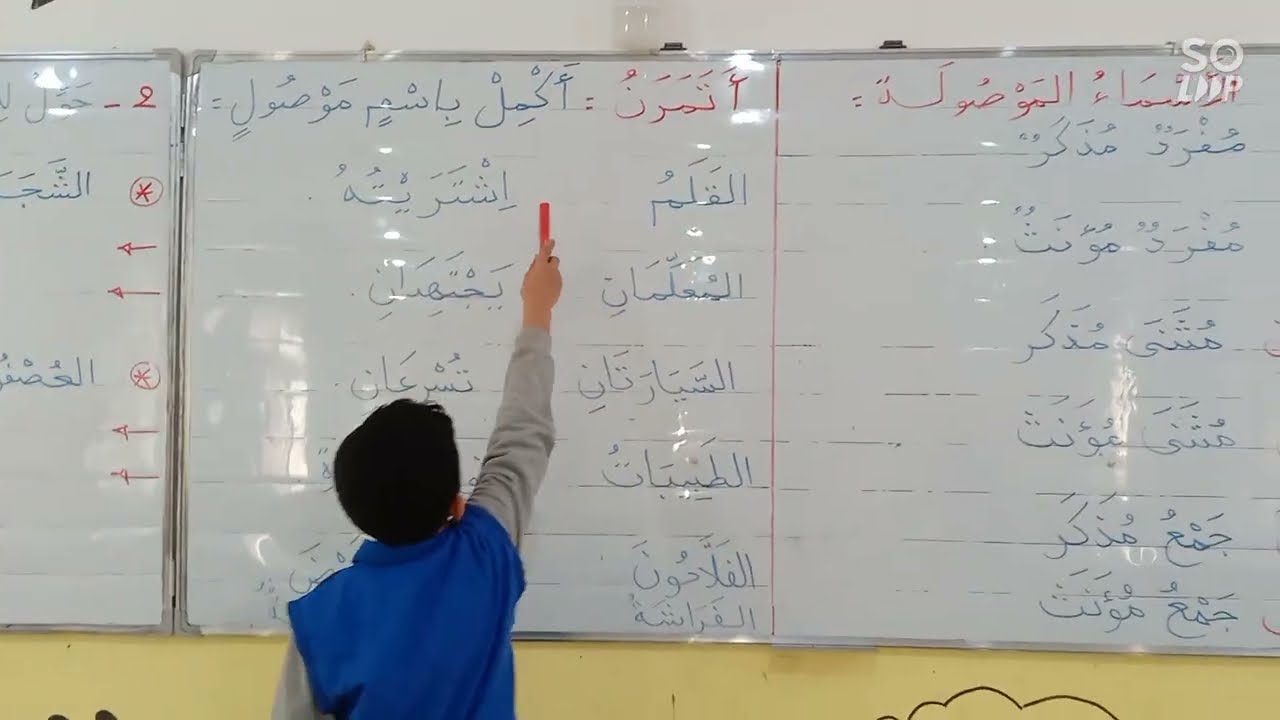 SO
LooP
الأَسْمَاءُ المَوْصُولَةُ :
مُفْرَدٌ مُذَكَرٌ
مُفْرَدٌ مُؤَنَثٌ :
مُثَنَى مُذَكَر
مُثَنَى مُؤَنَث
جَمْعُ مُذَكَر
جَمْعُ مُؤَنَث
أَتَمَرَنُ : أَكْمِلْ بِاسْمٍ مَوْصُولٍ :
القَلَمُ اِشْتَرَيْتُهُ .
المُعَلِّمَانِ يَجْتَهِدَانِ .
السَّيَارَتَانِ تُسْرِعَانِ .
الطَبِيبَاتُ
الفَلَّاحُونَ
الفَرَاشَةُ
2 - حَوِّلْ